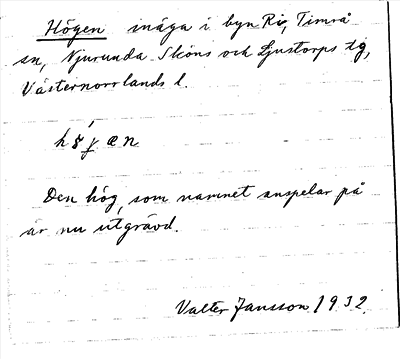 Högen inäga i byn Ri, Timrå
sn, Njurunda Sköns och Ljustorps tg,
Västernorrlands l.
Den hög, som namnet anspelar på
är nu utgrävd.
Valter Jansson 1932.